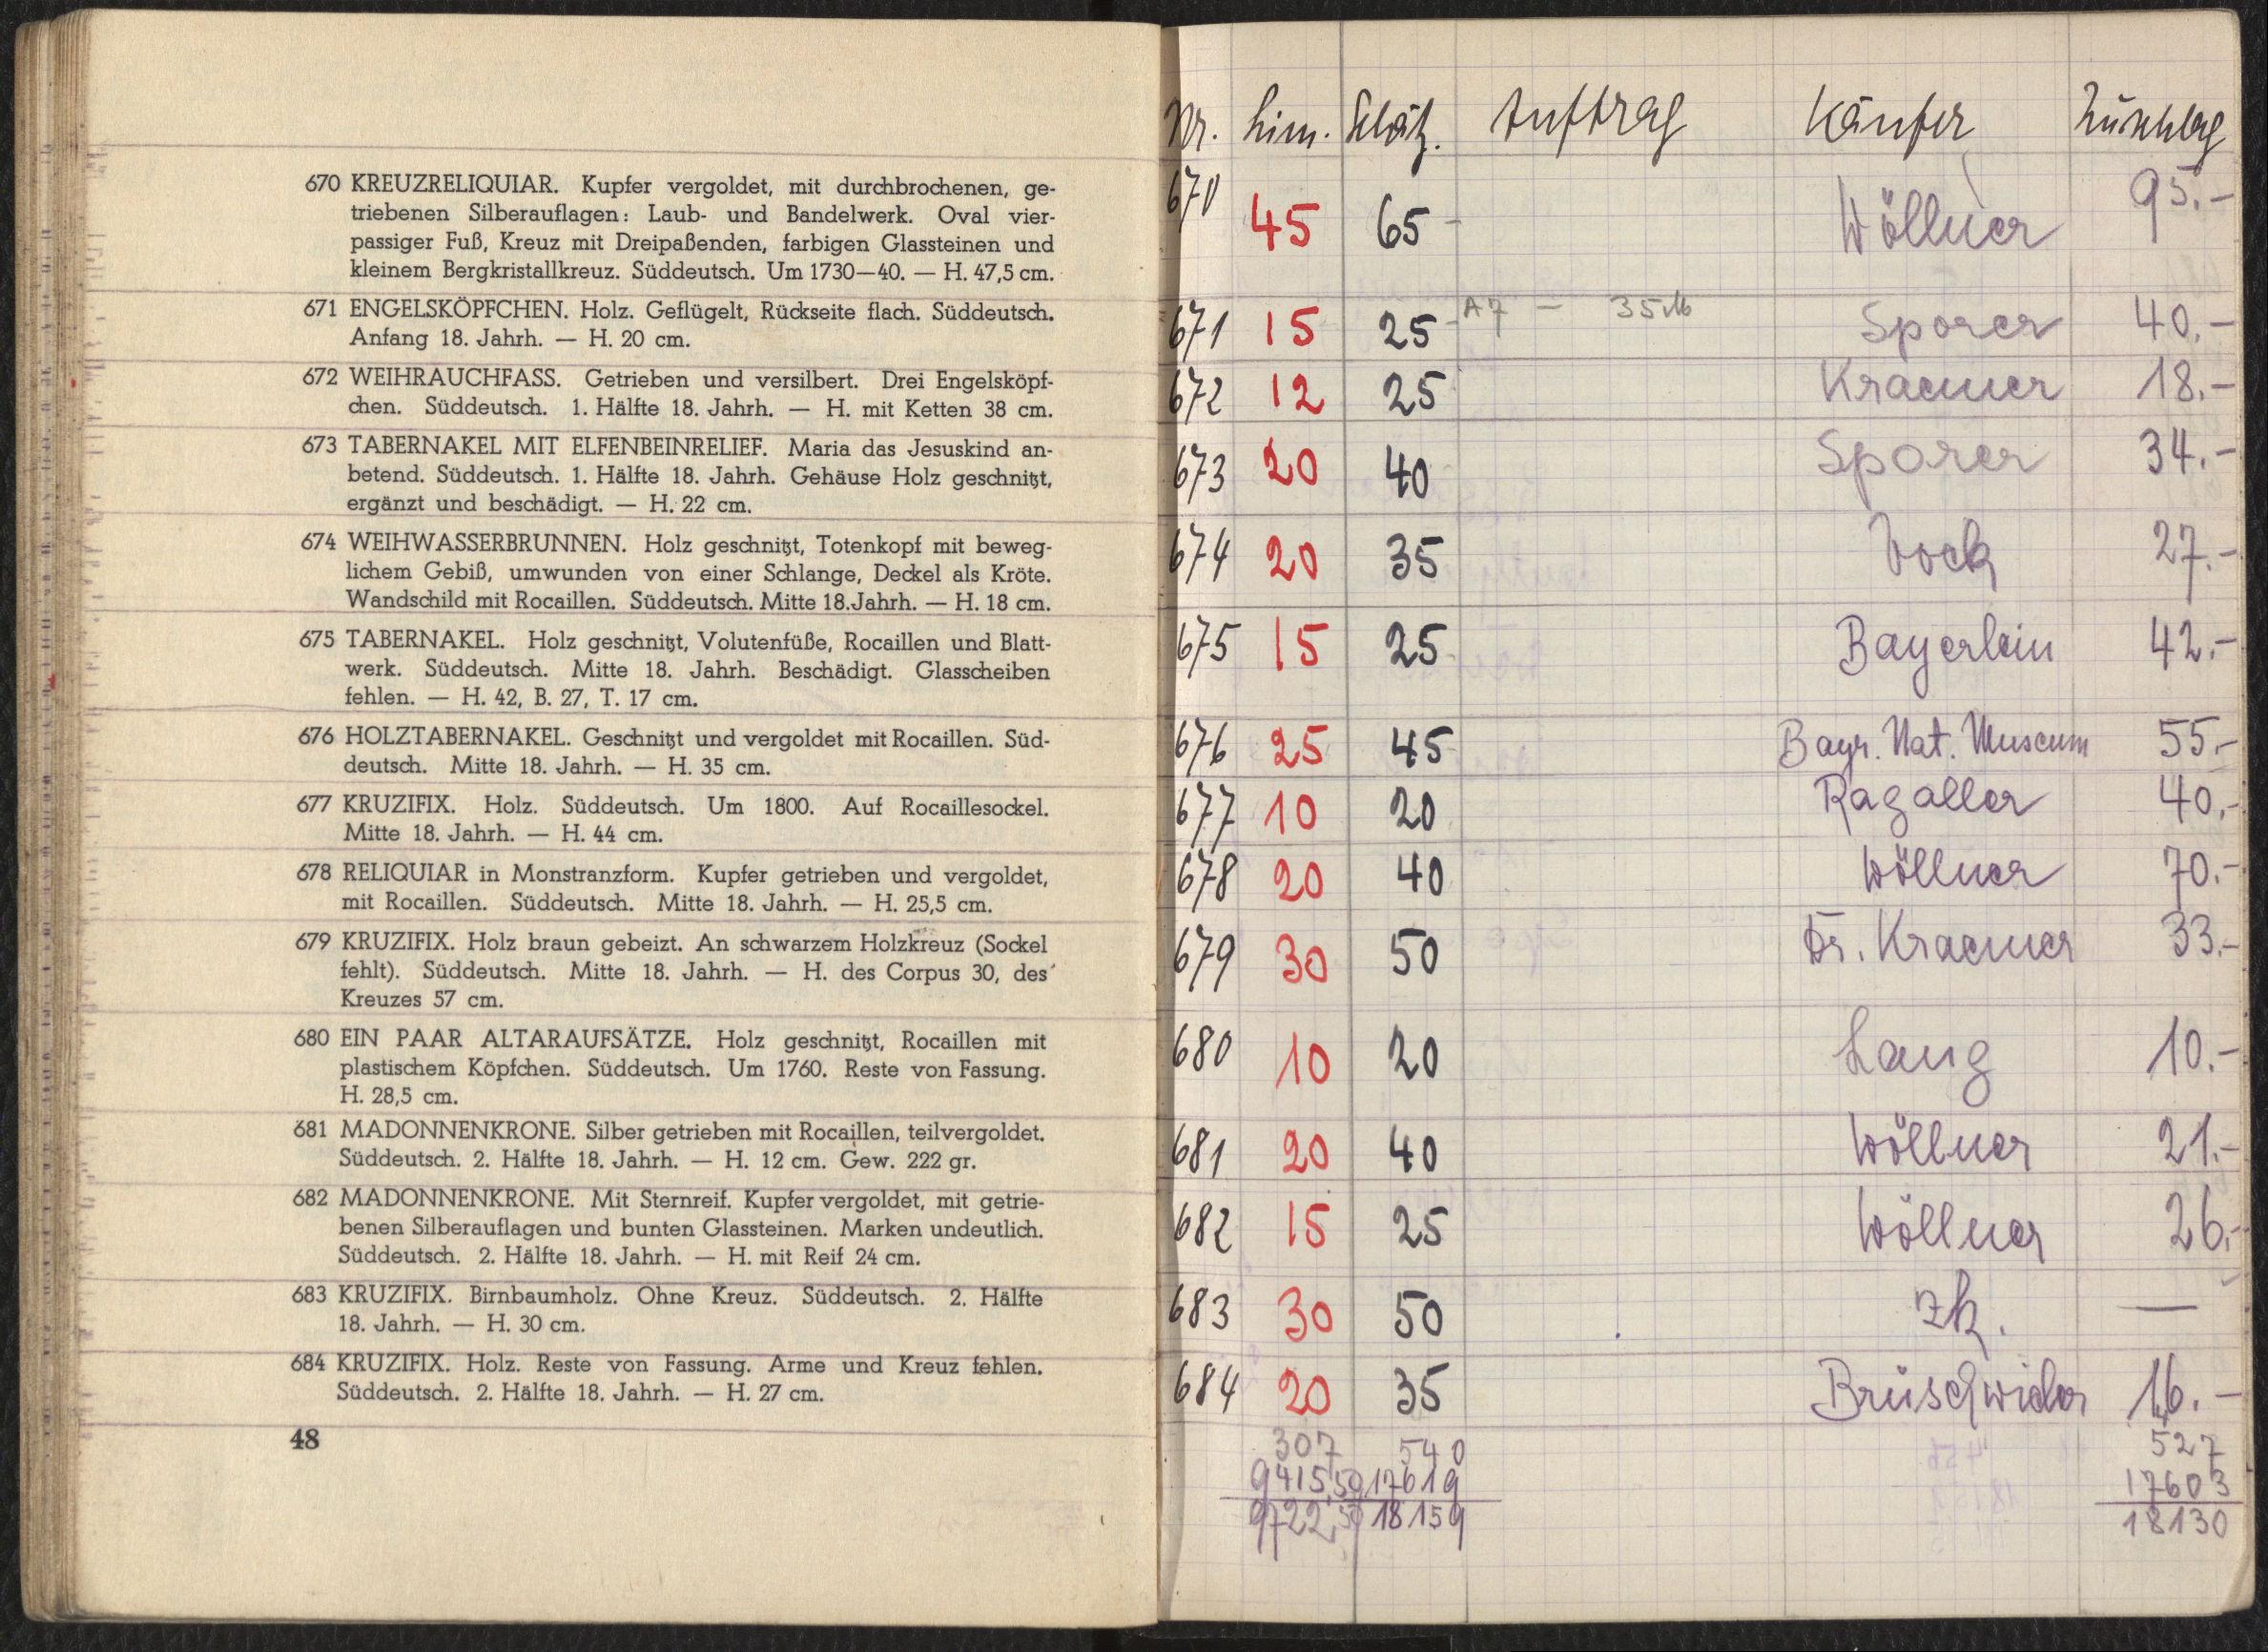 670 KREUZRELIQUIAR. Kupfer vergoldet, mit durchbrochenen, ge-
triebenen Silberauflagen: Laub- und Bandelwerk. Oval vier-
passiger Fuß, Kreuz mit Dreipaßenden, farbigen Glassteinen und
kleinem Bergkristallkreuz. Süddeutsch. Um 1730—40. — H. 47,5 cm.
671 ENGELSKÖPFCHEN. Holz. Geflügelt, Rückseite flach. Süddeutsch.
Anfang 18. Jahrh. — H. 20 cm.
672 WEIHRAUCHFASS. Getrieben und versilbert. Drei Engelsköpf-
chen. Süddeutsch. 1. Hälfte 18. Jahrh. — H. mit Ketten 38 cm.
673 TABERNAKEL MIT ELFENBEINRELIEF. Maria das Jesuskind an-
betend. Süddeutsch. 1. Hälfte 18. Jahrh. Gehäuse Holz geschnitzt,
ergänzt und beschädigt. — H. 22 cm.
674 WEIHWASSERBRUNNEN. Holz geschnitzt, Totenkopf mit beweg-
lichem Gebiß, umwunden von einer Schlange, Deckel als Kröte.
Wandschild mit Rocaillen. Süddeutsch. Mitte 18.Jahrh. — H. 18 cm.
675 TABERNAKEL. Holz geschnitzt, Volutenfüße, Rocaillen und Blatt-
werk. Süddeutsch. Mitte 18. Jahrh. Beschädigt. Glasscheiben
fehlen. — H. 42, B. 27, T. 17 cm.
676 HOLZTABERNAKEL. Geschnitzt und vergoldet mit Rocaillen. Süd-
deutsch. Mitte 18. Jahrh. — H. 35 cm.
677 KRUZIFIX. Holz. Süddeutsch. Um 1800. Auf Rocaillesockel.
Mitte 18. Jahrh. — H. 44 cm.
678 RELIQUIAR in Monstranzform. Kupfer getrieben und vergoldet,
mit Rocaillen. Süddeutsch. Mitte 18. Jahrh. — H. 25,5 cm.
679 KRUZIFIX. Holz braun gebeizt. An schwarzem Holzkreuz (Sockel
fehlt). Süddeutsch. Mitte 18. Jahrh. — H. des Corpus 30, des
Kreuzes 57 cm.
680 EIN PAAR ALTARAUFSÄTZE. Holz geschnitzt, Rocaillen mit
plastischem Köpfchen. Süddeutsch. Um 1760. Reste von Fassung.
H. 28,5 cm.
681 MADONNENKRONE. Silber getrieben mit Rocaillen, teilvergoldet.
Süddeutsch. 2. Hälfte 18. Jahrh. — H. 12 cm. Gew. 222 gr.
682 MADONNENKRONE. Mit Sternreif. Kupfer vergoldet, mit getrie-
benen Silberauflagen und bunten Glassteinen. Marken undeutlich.
Süddeutsch. 2. Hälfte 18. Jahrh. — H. mit Reif 24 cm.
683 KRUZIFIX. Birnbaumholz. Ohne Kreuz. Süddeutsch. 2. Hälfte
18. Jahrh. — H. 30 cm.
684 KRUZIFIX. Holz. Reste von Fassung. Arme und Kreuz fehlen.
Süddeutsch. 2. Hälfte 18. Jahrh. — H. 27 cm.
48
Nr. Lim. Schätz. Auftrag Käufer Zuschlag
670 45 65 Wöllner 95.-
671 15 25 A7 — 35 M Sporer 40.-
672 12 25 Kraemer 18.-
673 20 40 Sporer 34.-
674 20 35 Vock 27.-
675 15 25 Bayerlein 42.-
676 25 45 Bayr. Nat. Museum 55.-
677 10 20 Ragaller 40.-
678 20 40 Wöllner 70.-
679 30 50 Dr. Kraemer 33.-
680 10 20 Lang 10.-
681 20 40 Wöllner 21.-
682 15 25 Wöllner 26.-
683 30 50 zk. —
684 20 35 Brüschwiler 16.-
307 540 527
9415,50 17619 17603
9722,50 18159 18130